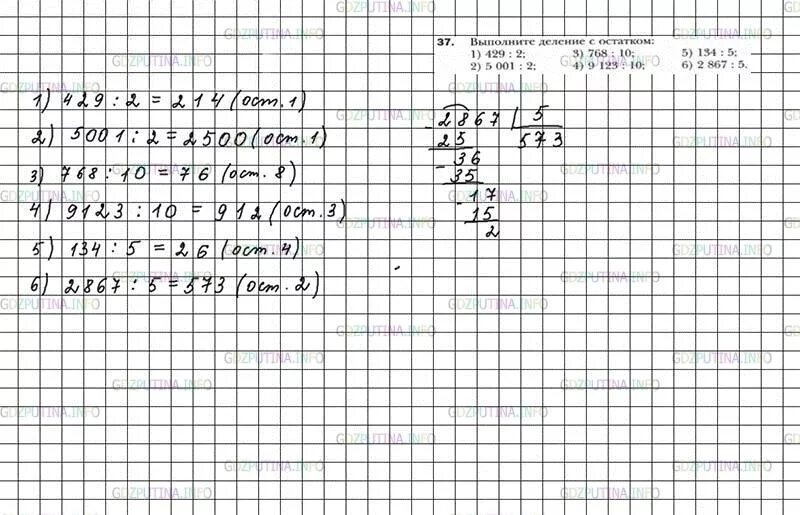 37. Выполните деление с остатком:
1) 429 : 2; 3) 768 : 10; 5) 134 : 5;
2) 5 001 : 2; 4) 9 123 : 10; 6) 2 867 : 5.
1) 429 : 2 = 214 (ост. 1)
2) 5001 : 2 = 2500 (ост. 1)
3) 768 : 10 = 76 (ост. 8)
4) 9123 : 10 = 912 (ост. 3)
5) 134 : 5 = 26 (ост. 4)
6) 2867 : 5 = 573 (ост. 2)
- 2867 | 5
25 573
- 36
35
- 17
15
2
GDZPUTINA.INFO